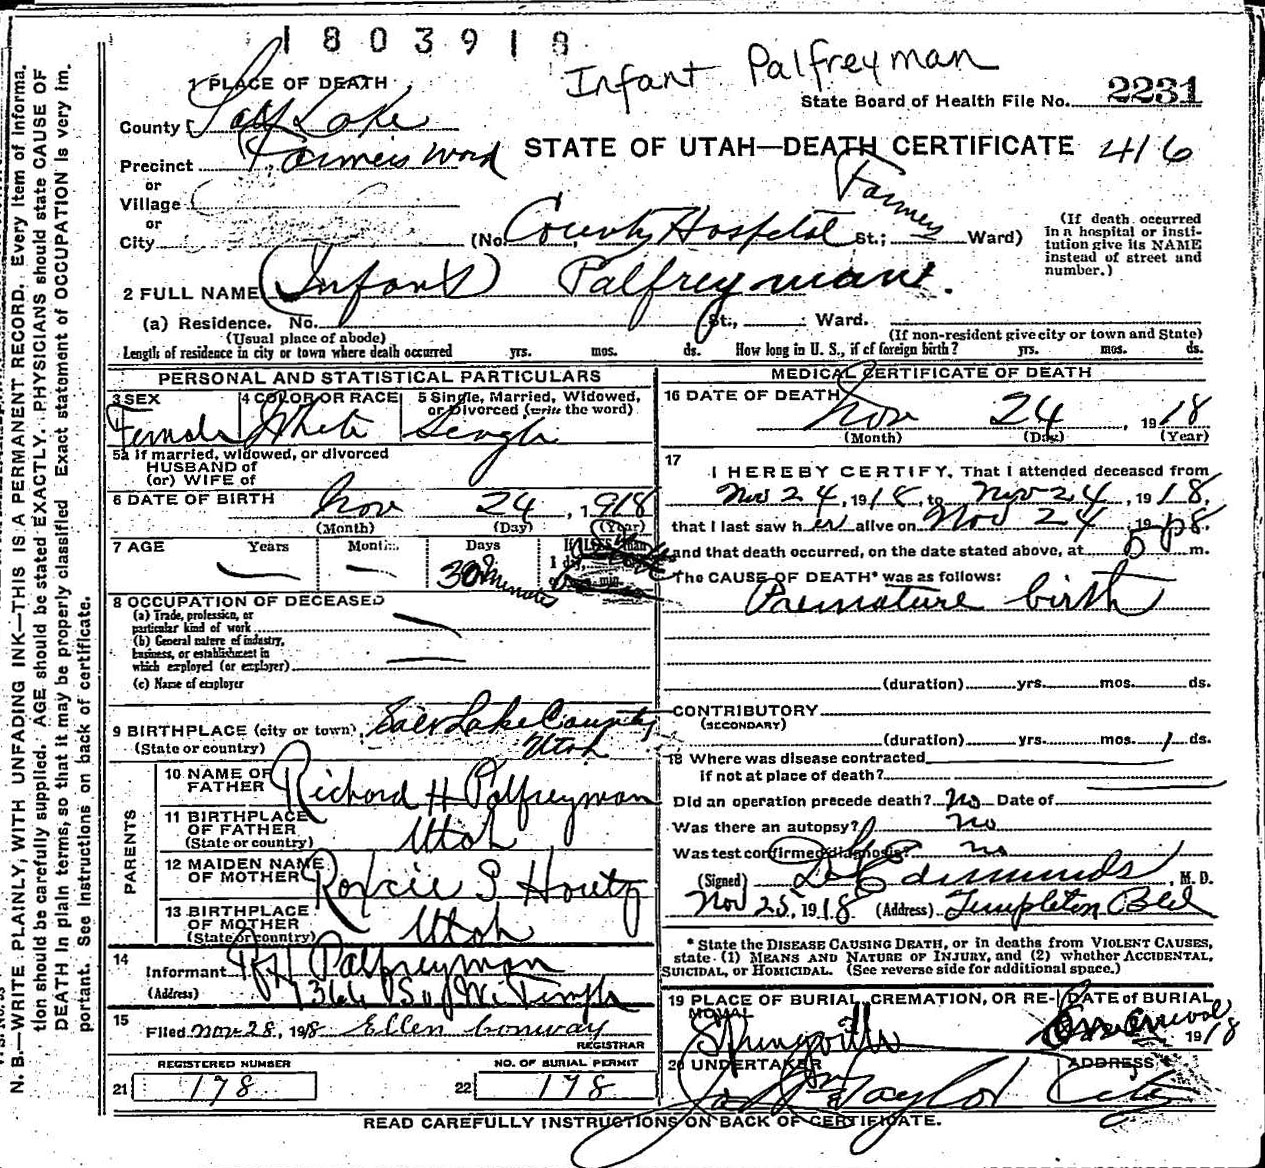 1803918
Infant Palfreyman
1 PLACE OF DEATH
State Board of Health File No. 2231
County Salt Lake
STATE OF UTAH—DEATH CERTIFICATE 416
Precinct Farmers Ward
or
Village
or
City
(No. County Hospital St.; Farmers Ward)
(If death occurred in a hospital or institution give its NAME instead of street and number.)
2 FULL NAME (Infant) Palfreyman.
(a) Residence. No. St., Ward.
(Usual place of abode)
(If non-resident give city or town and State)
Length of residence in city or town where death occurred yrs. mos. ds. How long in U. S., if of foreign birth? yrs. mos. ds.
PERSONAL AND STATISTICAL PARTICULARS
3 SEX
Female
4 COLOR OR RACE
White
5 Single, Married, Widowed, or Divorced (write the word)
Single
5a If married, widowed, or divorced
HUSBAND of
(or) WIFE of
6 DATE OF BIRTH Nov 24, 1918
(Month) (Day) (Year)
7 AGE Years Months Days
30 Minutes
8 OCCUPATION OF DECEASED
(a) Trade, profession, or
particular kind of work
(b) General nature of industry,
business, or establishment in
which employed (or employer)
(c) Name of employer
9 BIRTHPLACE (city or town) Salt Lake County
(State or country) Utah
PARENTS
10 NAME OF
FATHER Richard H Palfreyman
11 BIRTHPLACE
OF FATHER
(State or country) Utah
12 MAIDEN NAME
OF MOTHER Roxcie S Houtz
13 BIRTHPLACE
OF MOTHER
(State or country) Utah
14
Informant R H Palfreyman
(Address) 1366 So W. Temple
15
Filed Nov 28, 1918 Ellen Conway
REGISTRAR
REGISTERED NUMBER
21 178
NO. OF BURIAL PERMIT
22 178
MEDICAL CERTIFICATE OF DEATH
16 DATE OF DEATH
Nov 24, 1918
(Month) (Day) (Year)
17
I HEREBY CERTIFY, That I attended deceased from
Nov 24, 1918, to Nov 24, 1918,
that I last saw her alive on Nov 24 1918.
and that death occurred, on the date stated above, at 5 P m.
The CAUSE OF DEATH* was as follows:
Premature birth
(duration) yrs. mos. ds.
CONTRIBUTORY
(SECONDARY)
(duration) yrs. mos. ds.
18 Where was disease contracted
if not at place of death?
Did an operation precede death? No Date of
Was there an autopsy? no
Was test confirmed diagnosis? no
(Signed) Edmunds, M. D.
Nov 25, 1918 (Address) Templeton Bld
* State the DISEASE CAUSING DEATH, or in deaths from VIOLENT CAUSES,
state (1) MEANS AND NATURE OF INJURY, and (2) whether ACCIDENTAL,
SUICIDAL, or HOMICIDAL. (See reverse side for additional space.)
19 PLACE OF BURIAL, CREMATION, OR REMOVAL
Springville
DATE of BURIAL
1918
20 UNDERTAKER
Taylor
ADDRESS
City
READ CAREFULLY INSTRUCTIONS ON BACK OF CERTIFICATE.
N. B.—WRITE PLAINLY, WITH UNFADING INK—THIS IS A PERMANENT RECORD. Every item of informa-
tion should be carefully supplied. AGE should be stated EXACTLY. PHYSICIANS should state CAUSE OF
DEATH in plain terms, so that it may be properly classified. Exact statement of OCCUPATION is very im-
portant. See instructions on back of certificate.